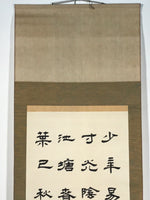 少年易
寸光陰
池塘春
葉已秋